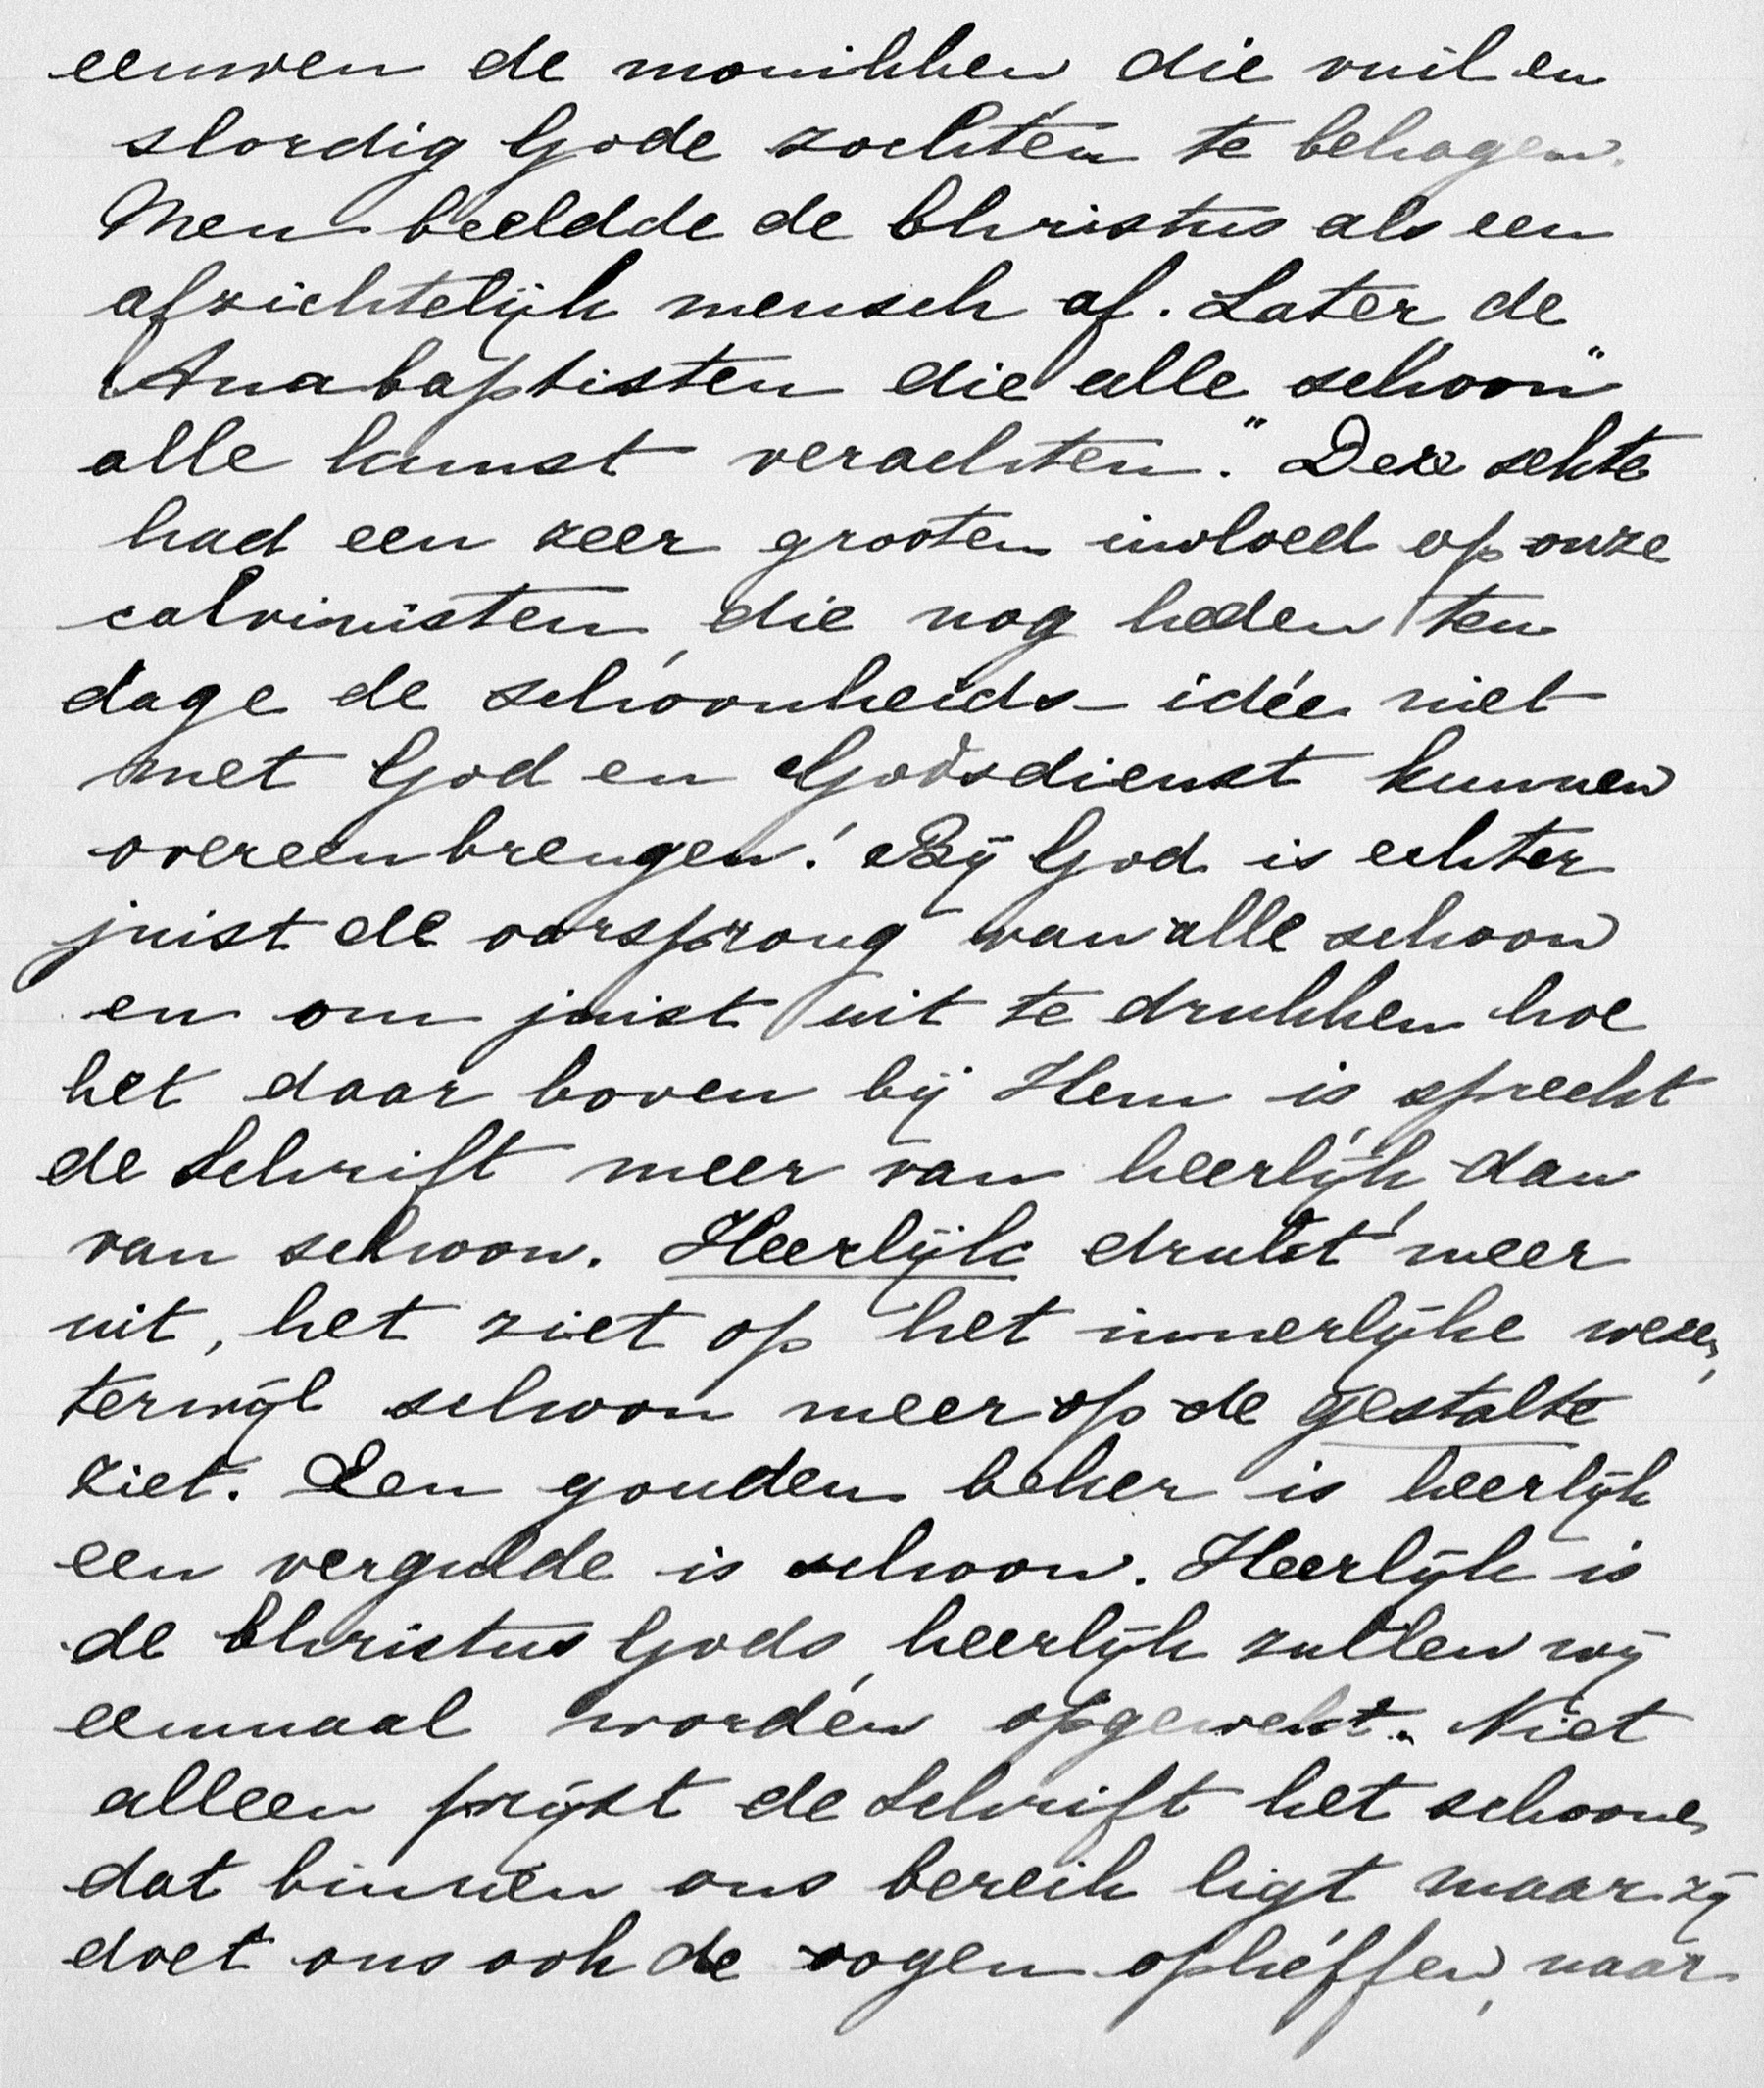 eeuwen de monikken die vuil en
slordig Gode zochten te behagen.
Men beeldde de Christus als een
afzichtelijk mensch af. Later de
Anabaptisten die alle "schoon"
alle kunst verachten." Deze sekte
had een zeer grooten invloed op onze
calvinisten, die nog heden ten
dage de schoonheids-idée niet
met God en Godsdienst kunnen
overeenbrengen! Bij God is echter
juist de oorsprong van alle schoon
en om juist uit te drukken hoe
het daar boven bij Hem is spreekt
de Schrift meer van heerlijk dan
van schoon. Heerlijk drukt meer
uit, het ziet op het innerlijke wezen,
terwijl schoon meer op de gestalte
ziet. Een gouden beker is heerlijk
een vergulde is schoon. Heerlijk is
de Christus Gods, heerlijk zullen wij
eenmaal worden opgewekt. Niet
alleen prijst de Schrift het schoone
dat binnen ons bereik ligt maar zij
doet ons ook de oogen opheffen, naar